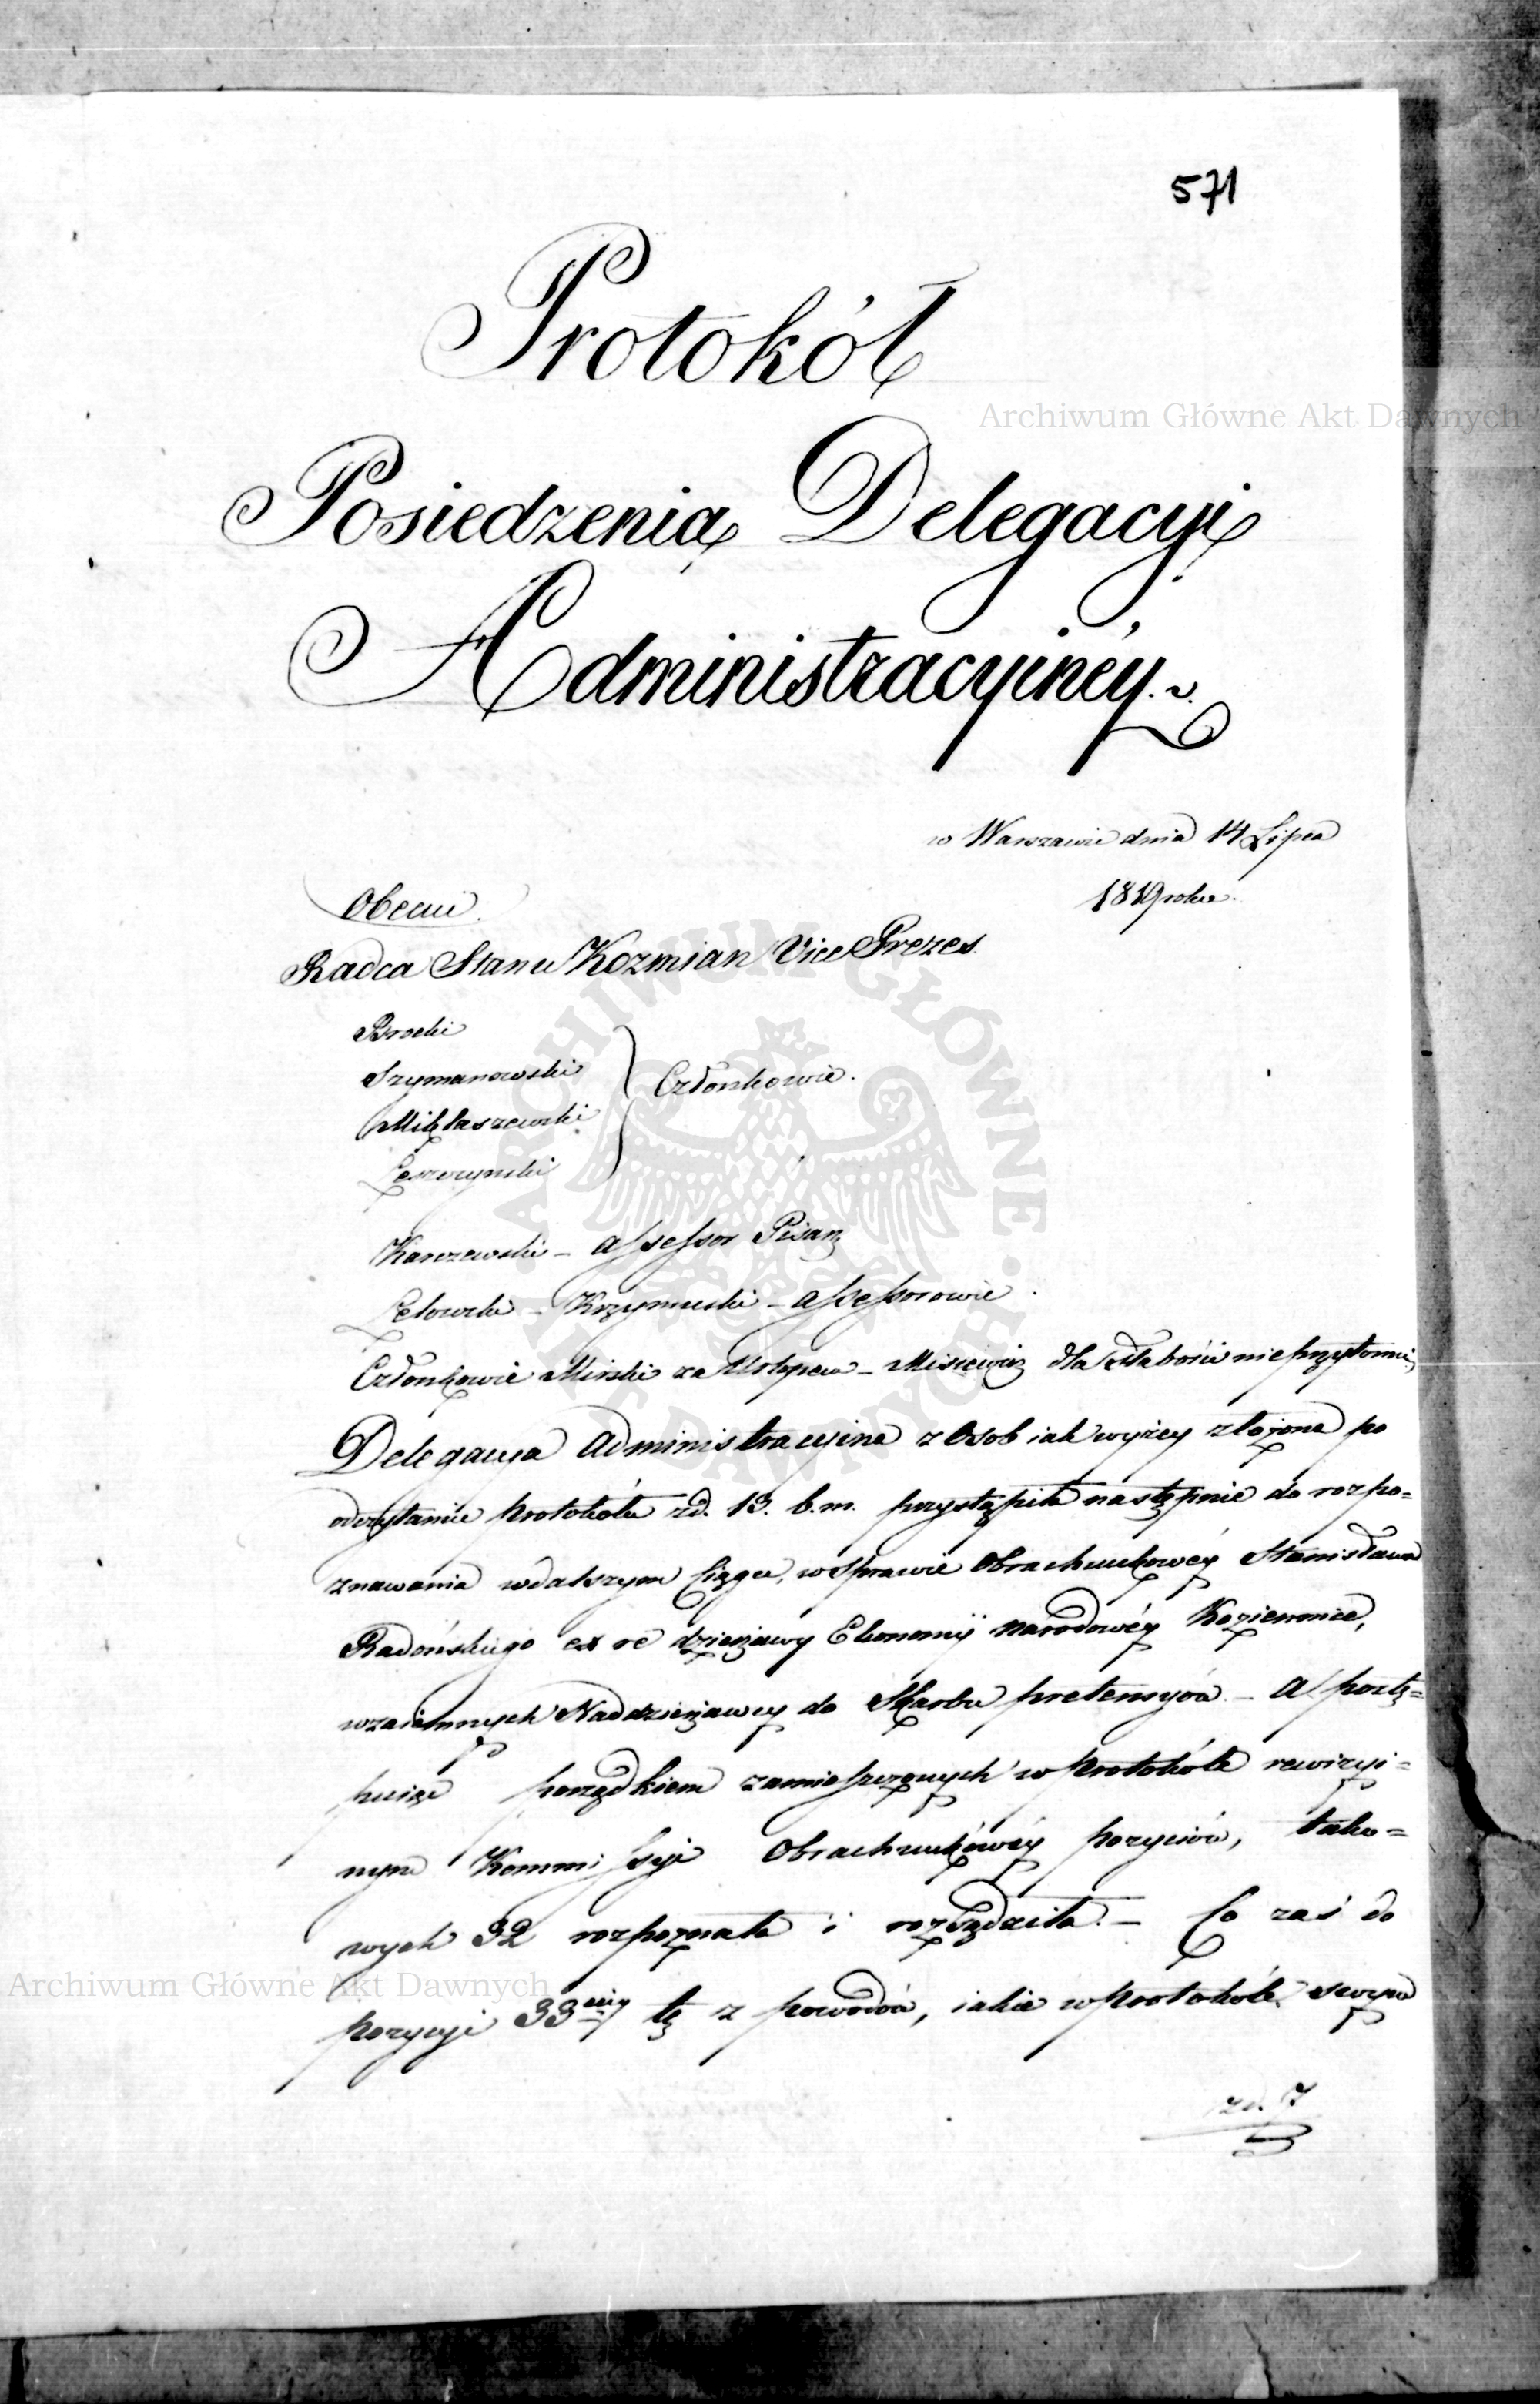 571
Protokół
Posiedzenia Delegacyi
Administracyinéy.
w Warszawie dnia 14 Lipca
1819 roku.
Obecni.
Radca Stanu Kozmian Vice Prezes.
Brocki
Szymanowski
Miklaszewski
Leszczynski
Członkowie.
Karczewski – Assessor Pisarz
Krzymuski – Assessorowie.
Członkowie Mirski za Urlopem – Misiewicz dla słabości nieprzytomni,
Delegacya Administracyina z Osob iak wyżey złożona po
odczytaniu Protokółu z d. 13. b. m. przystąpiła następnie do rozpo=
znawania w dalszym Ciągu, w Sprawie Obrachunkowéy Stanisława
Radońskiego ex re dzierżawy Ekonomii Narodowéy Kozienice,
wzaiemnych Naddzierżawcy do Skarbu pretensyów. – A postę=
puiąc porządkiem zamieszczonych w Protokóle rewizyi=
nym Kommissyi Obrachunkówéy pozyciów, tako=
wych 32 rozpoznała i rozsądziła. – Co zaś do
pozycyi 33ciéy tę z powodów, iakie w Protokóle